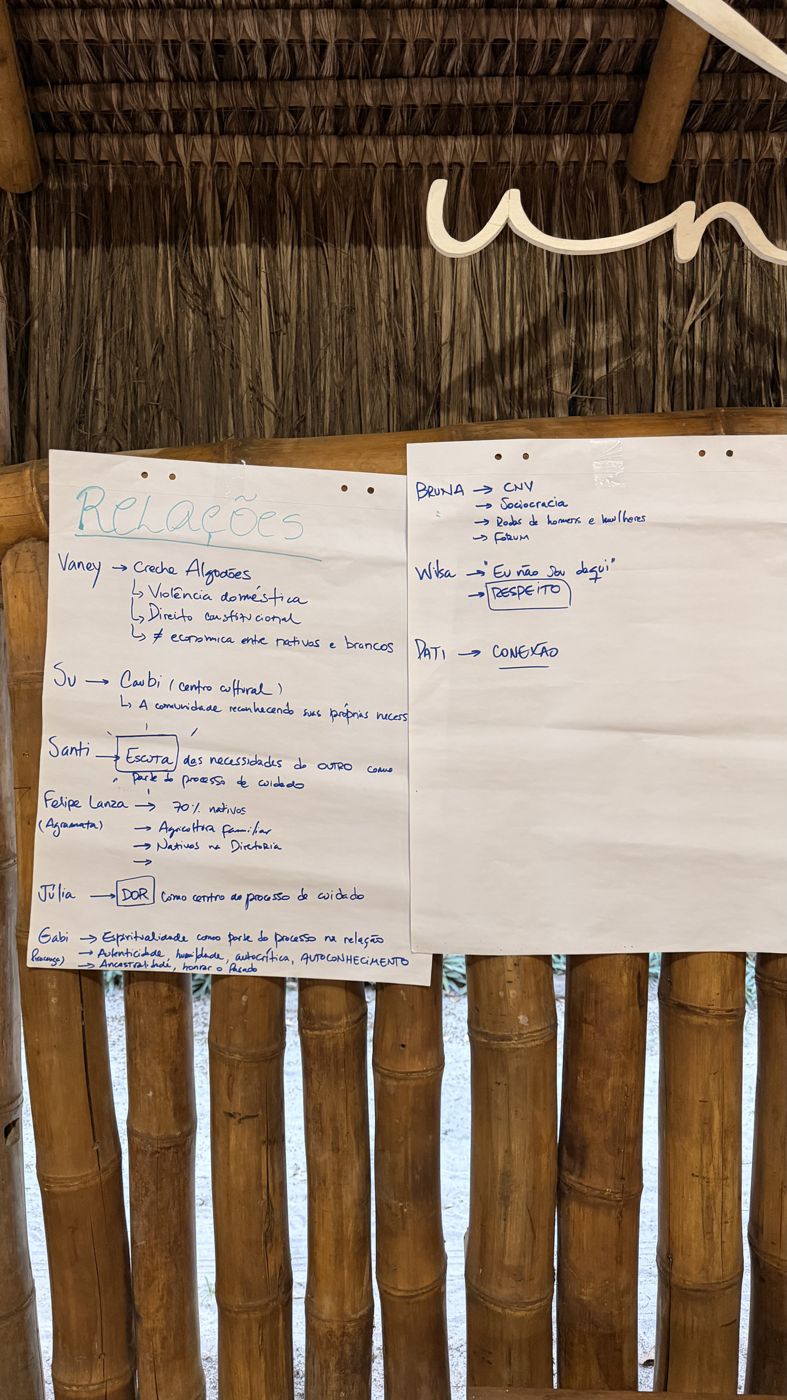 un
RELAÇÕES
Vaney → Creche Algodões
↳ Violência doméstica
↳ Direito constitucional
↳ ≠ economica entre nativos e brancos
Su → Caubi (centro cultural)
↳ A comunidade reconhecendo suas próprias necess
Santi → ESCUTA das necessidades do OUTRO como
parte do processo de cuidado
Felipe Lanza → 70% nativos
(Agramata) → Agricultura familiar
→ Nativos na Diretoria
→
Júlia → DOR como centro do processo de cuidado
Gabi → Espiritualidade como parte do processo na relação
→ Autenticidade, humildade, autocrítica, AUTOCONHECIMENTO
→ Ancestralidade, honrar o Passado
BRUNA → CNV
→ Sociocracia
→ Rodas de homens e mulheres
→ FORUM
Wilsa → "Eu não sou daqui"
→ RESPEITO
PATI → CONEXÃO